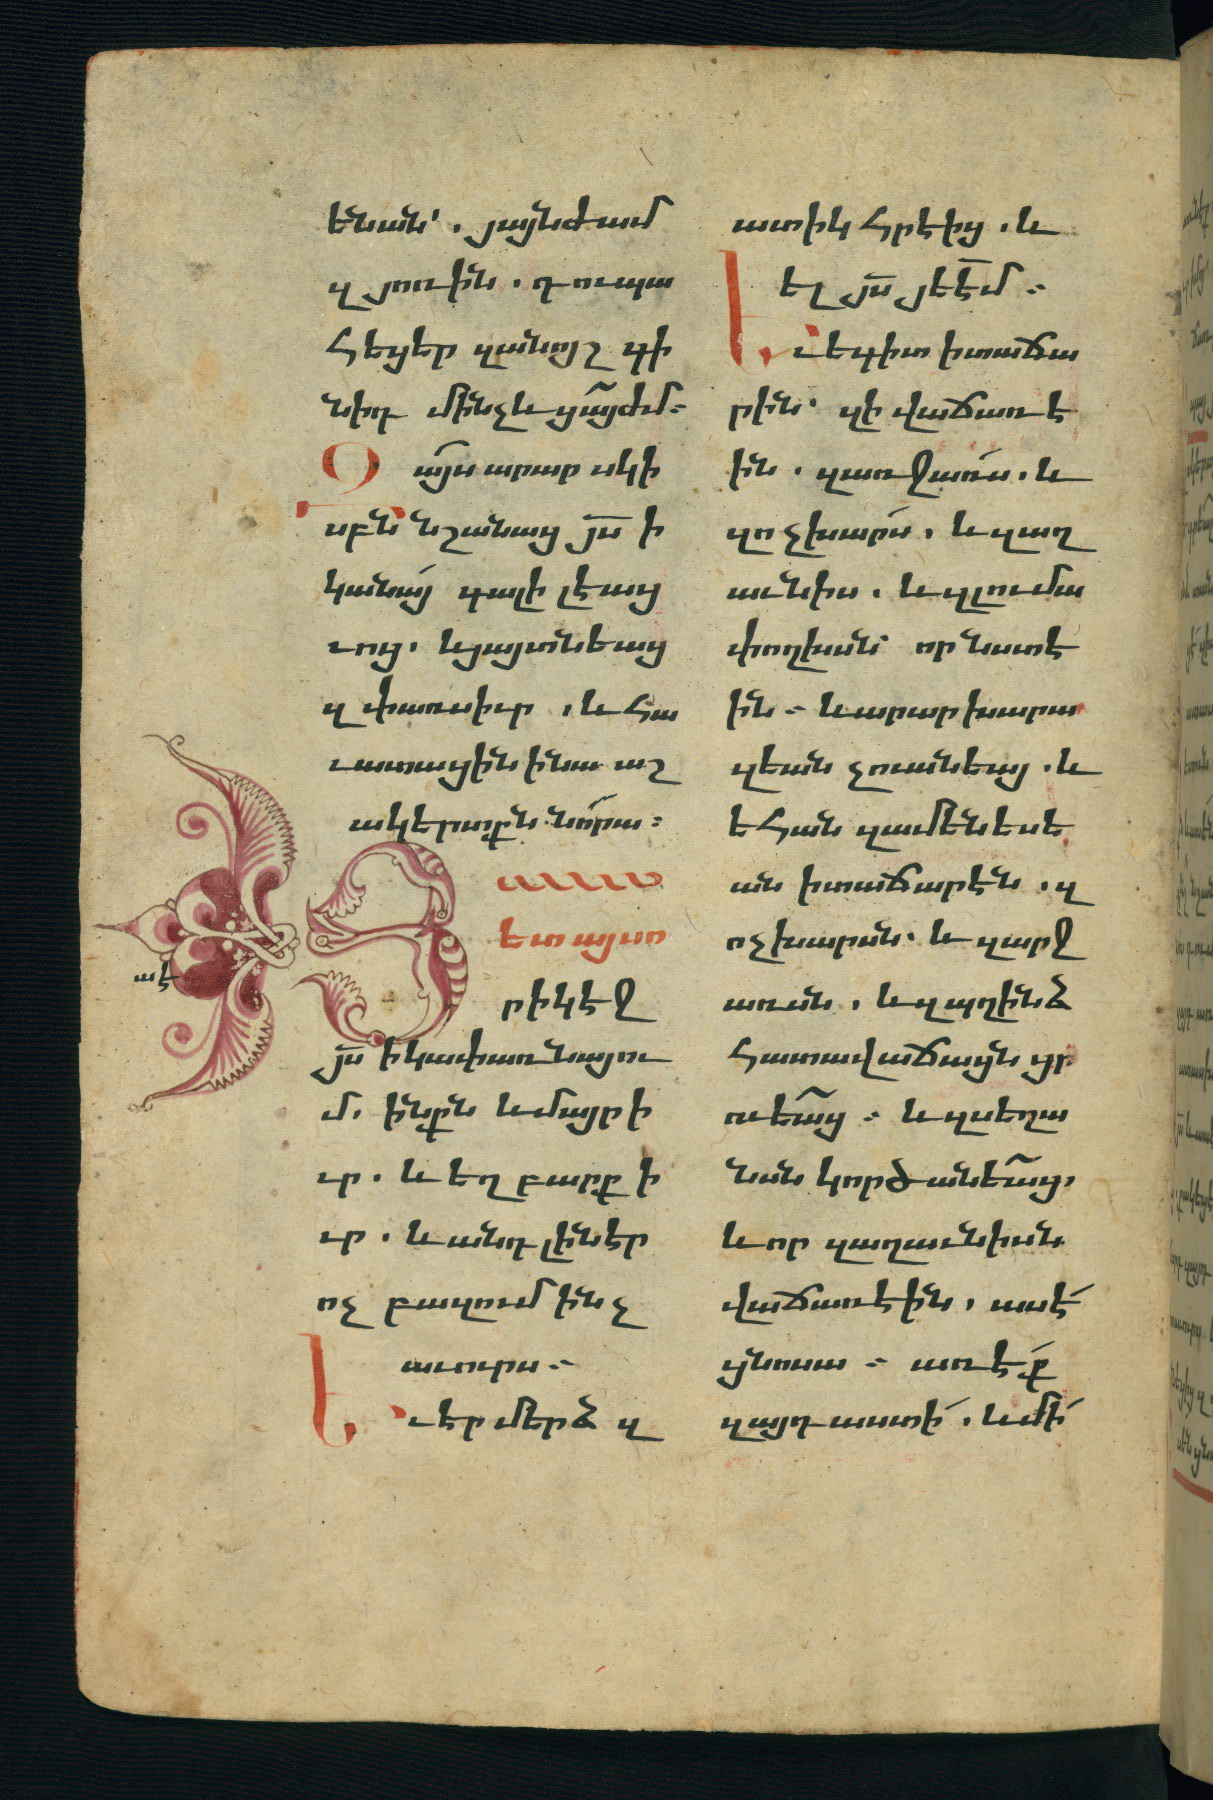 ենան՝. յայնժամ
զյոռին. դու պա
հեցեր զանոյշ գի
նիդ մինչև ցայժմ։
Զայս արար սկի
սբն նշանաց յ̅ս ի
կանայ գալիլեաց
ւոց. և յայտնեաց
զփառսիւր. և հա
ւատացին ինա աշ
ակերտքն նորա։
Յետ այսո
րիկ էջ
յ̅ս ի կափառնայու
մ. ինքն և մայր ի
ւր. և եղբարք ի
ւր. և անդ լինէր
ոչ բազում ինչ
աւուրս։
Եւ էր մերձ զ
ատիկ հրէից. և
ել յ̅ս յե̅է̅մ։
Եւ եգիտ ի տաճա
րին՝ զի վաճառէ
ին. զառջառս. և
զոչխարս. և զաղ
աւնիս. և զլումա
փողխսն որ նստէ
ին։ և արար խարա
զեան չուանեայ. և
եհան զամենեսե
ան ի տաճարէն. զ
ոչխարսն. և զարջ
առսն. և զպղինձ
հատավաճայն ցր
ուեաց։ և զսեղա
նսն կործանեաց.
և որ զաղաւնիսն
վաճառէին. ասէ
ցնոսա։ առէք
զայդ աստի. և մի